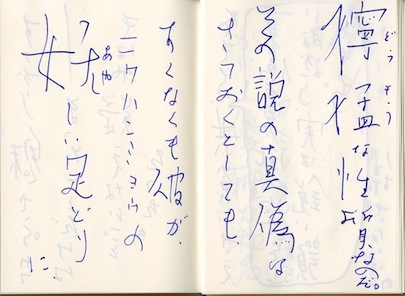 どうもう
獰猛な性質なのだ。
その説の真偽は
さておくとしても、
すくなくも彼が、
ニワハンミョウの
あや
しい足どりに、